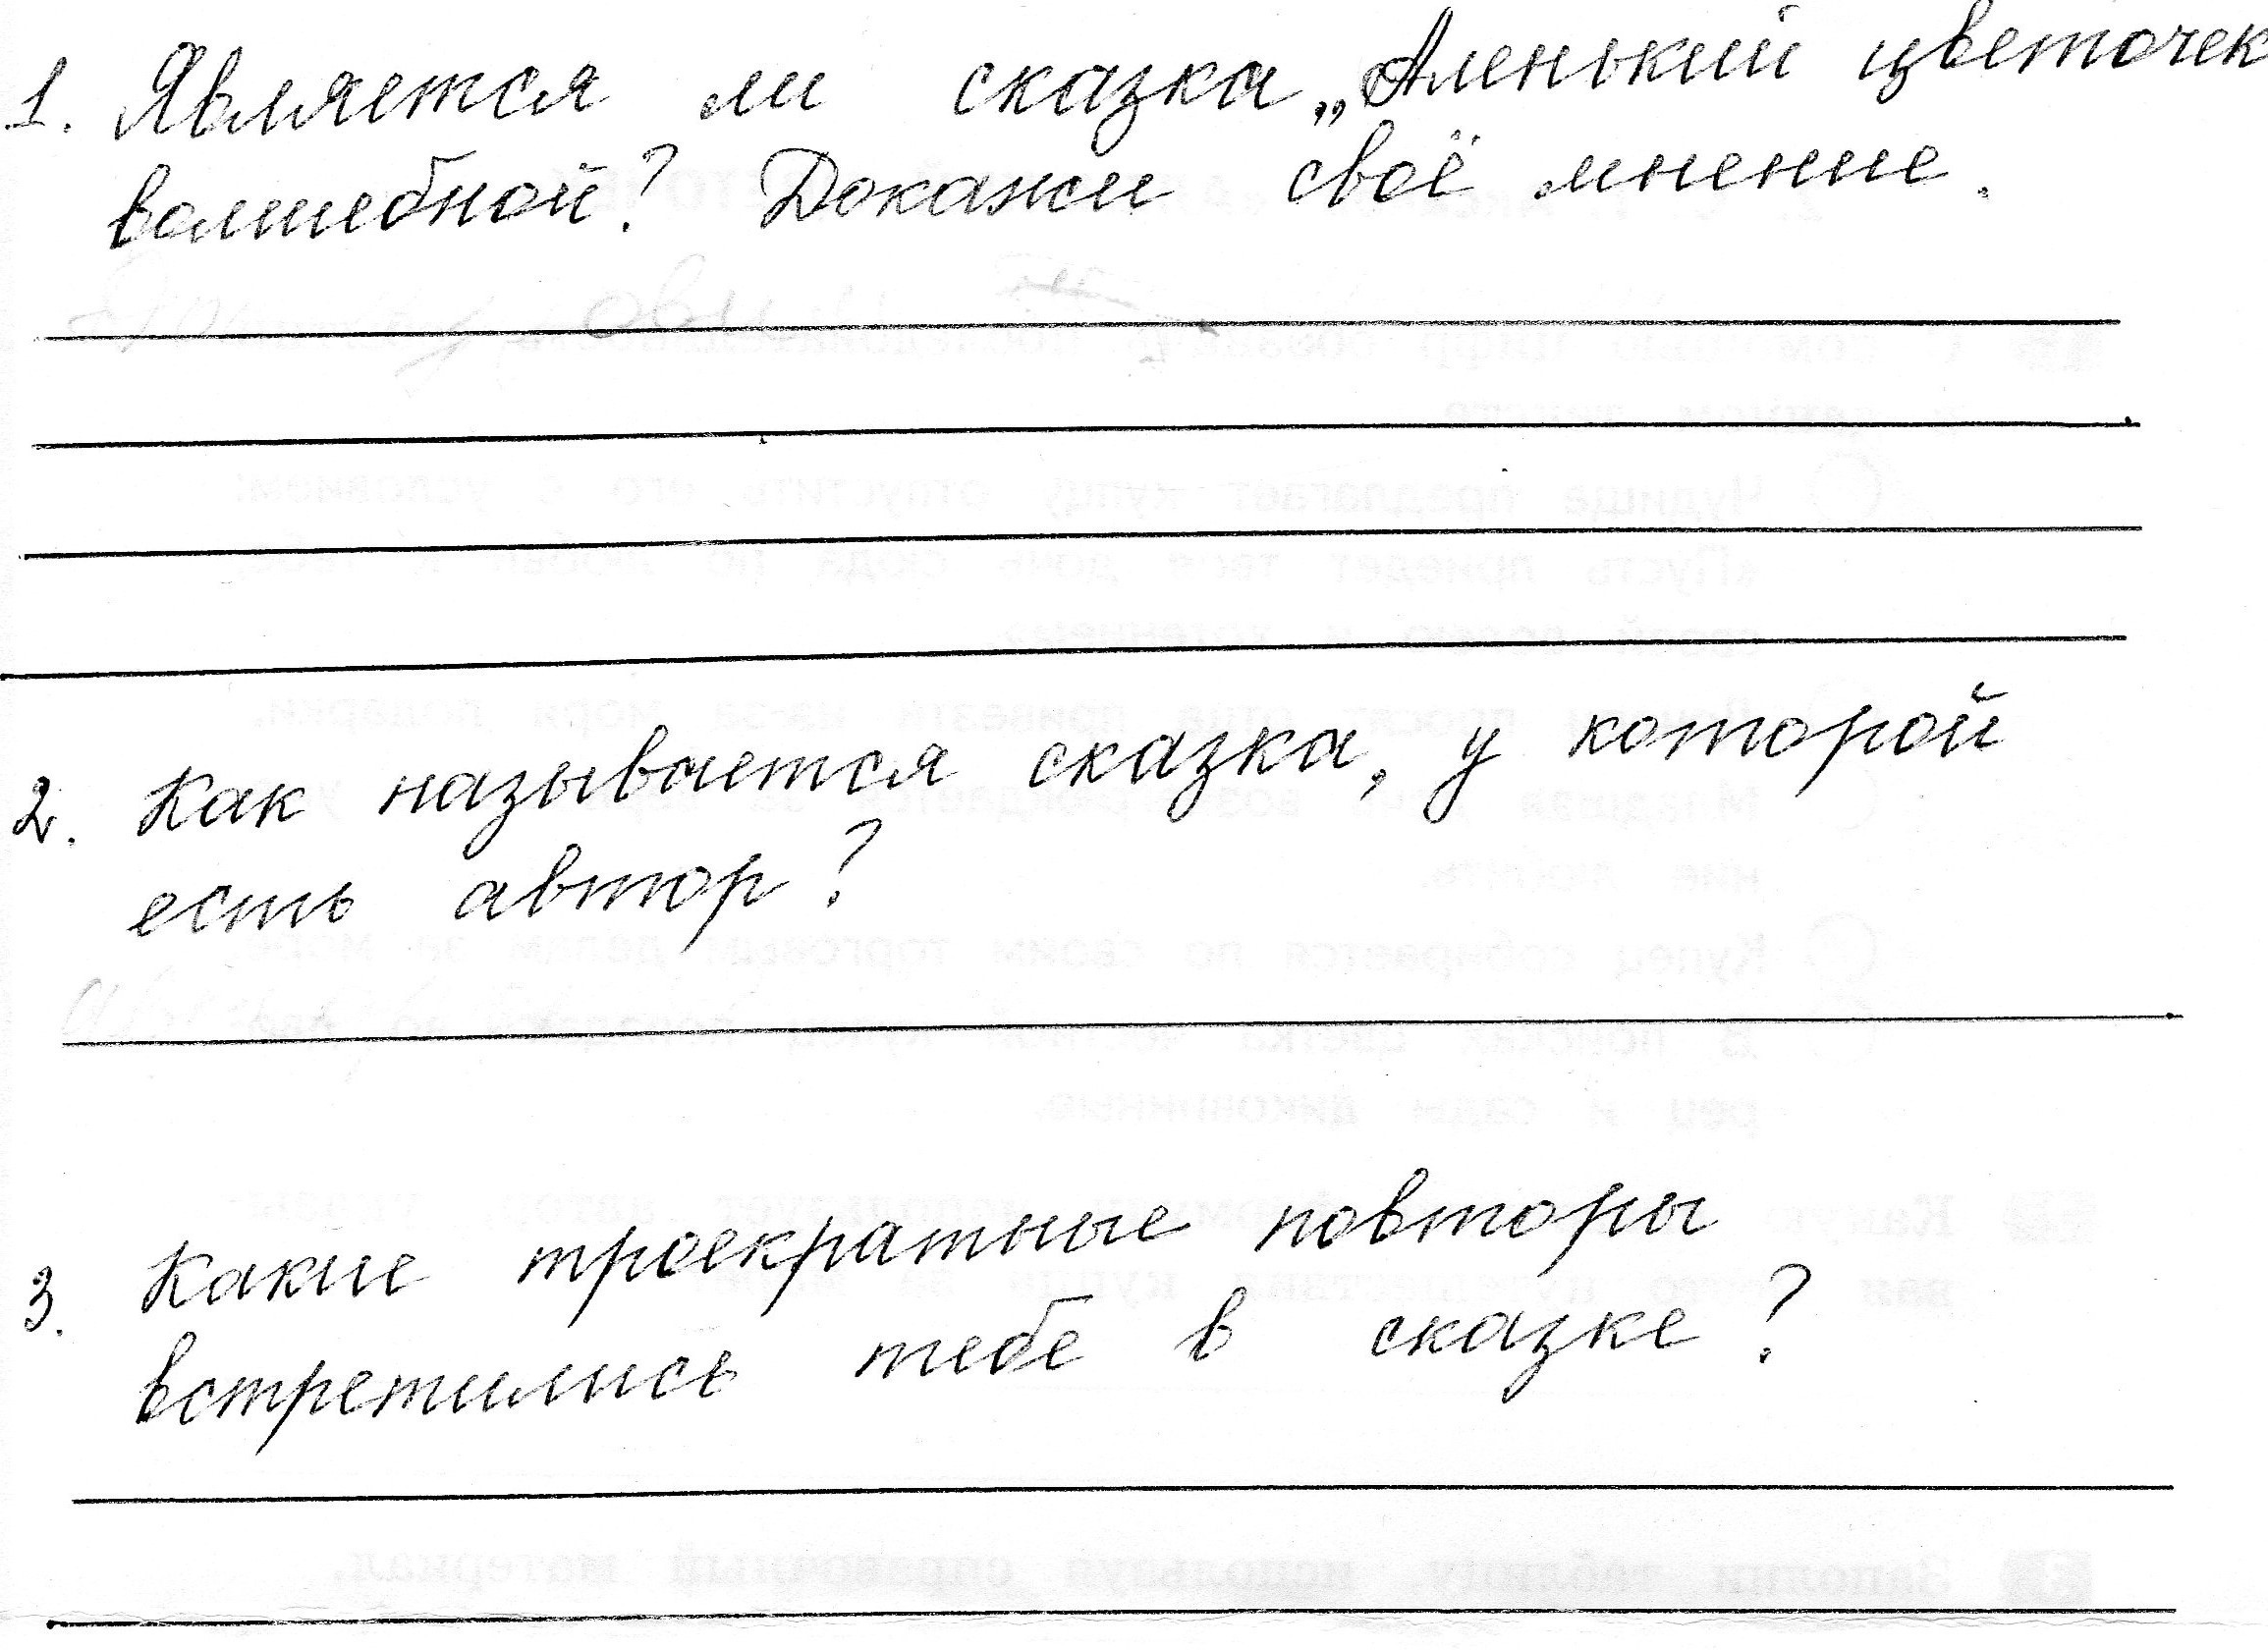 1. Является ли сказка „Аленький цветочек
волшебной? Докажи своё мнение.
2. Как называется сказка, у которой
есть автор?
3. Какие троекратные повторы
встретились тебе в сказке?